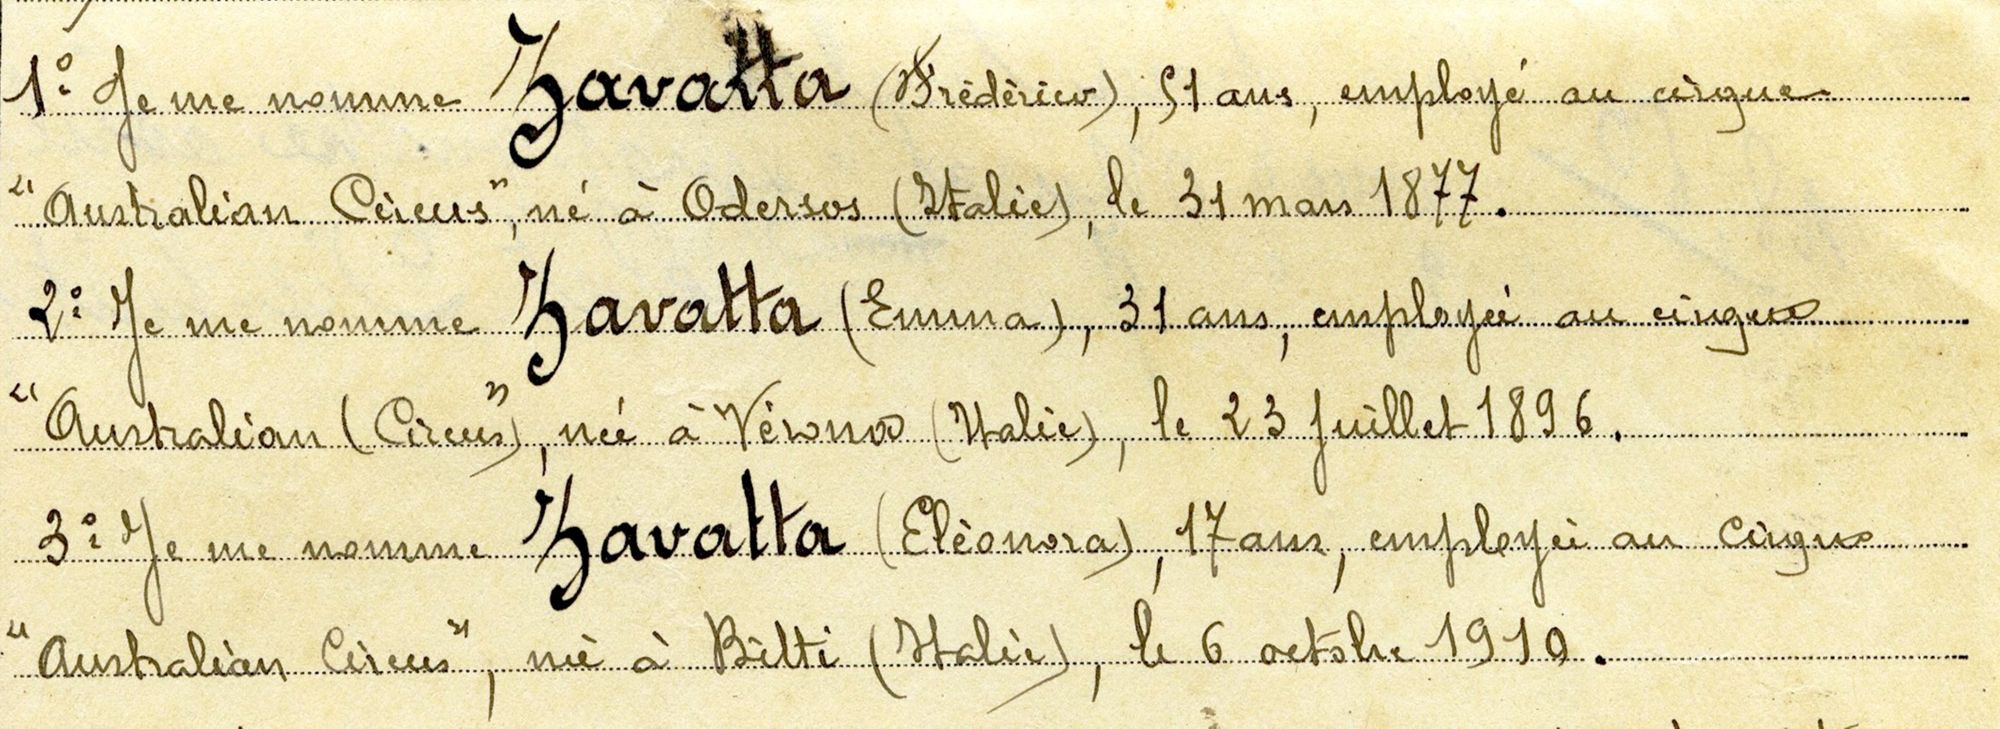 1° Je me nomme Zavatta (Frédérico), 51 ans, employé au cirque
"Australian Circus", né à Odersos (Italie), le 31 mars 1877.
2° Je me nomme Zavatta (Emma), 31 ans, employée au cirque
"Australian (Circus"), née à Vérona (Italie), le 23 Juillet 1896.
3° Je me nomme Zavatta (Eléonora), 17 ans, employée au Cirque
"Australian Circus", née à Bilti (Italie), le 6 octobre 1910.